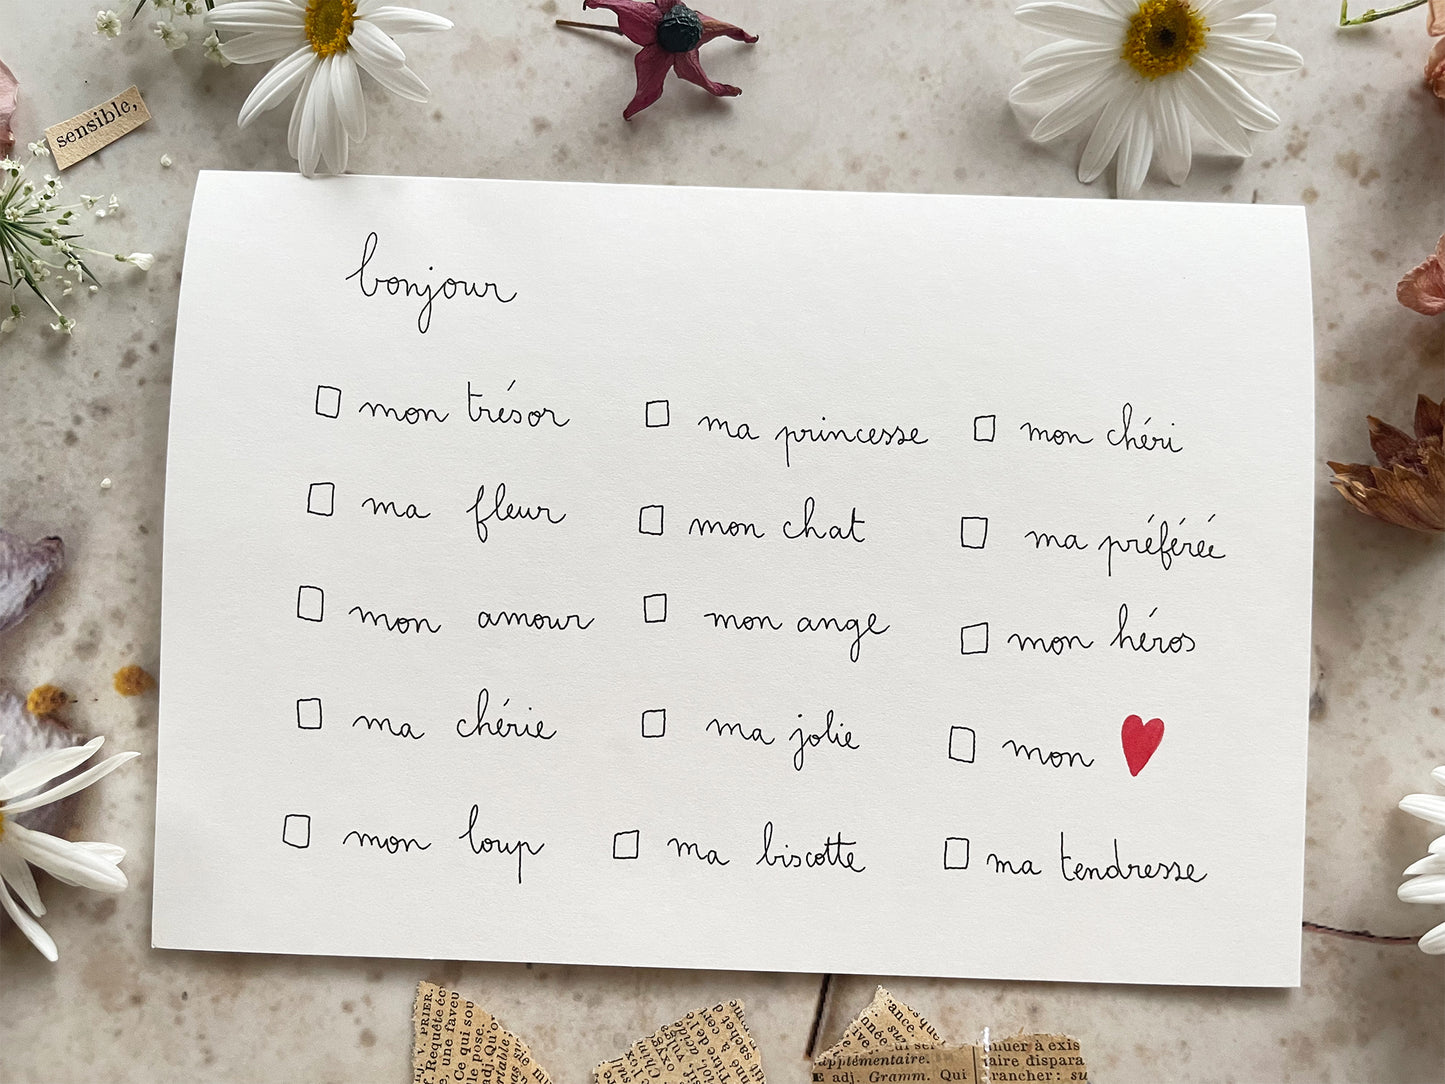 sensible,
bonjour
☐ mon trésor ☐ ma princesse ☐ mon chéri
☐ ma fleur ☐ mon chat ☐ ma préférée
☐ mon amour ☐ mon ange ☐ mon héros
☐ ma chérie ☐ ma jolie ☐ mon ♥
☐ mon loup ☐ ma biscotte ☐ ma tendresse
PRIER.
Requête
une faveu
Ce qui sou
pose.
adj. Qu'o
sachet d
Titre de l'é
ance.
applémentaire.
E adj. Gramm. Qui
nuer à exis
aire dispara
rancher: su